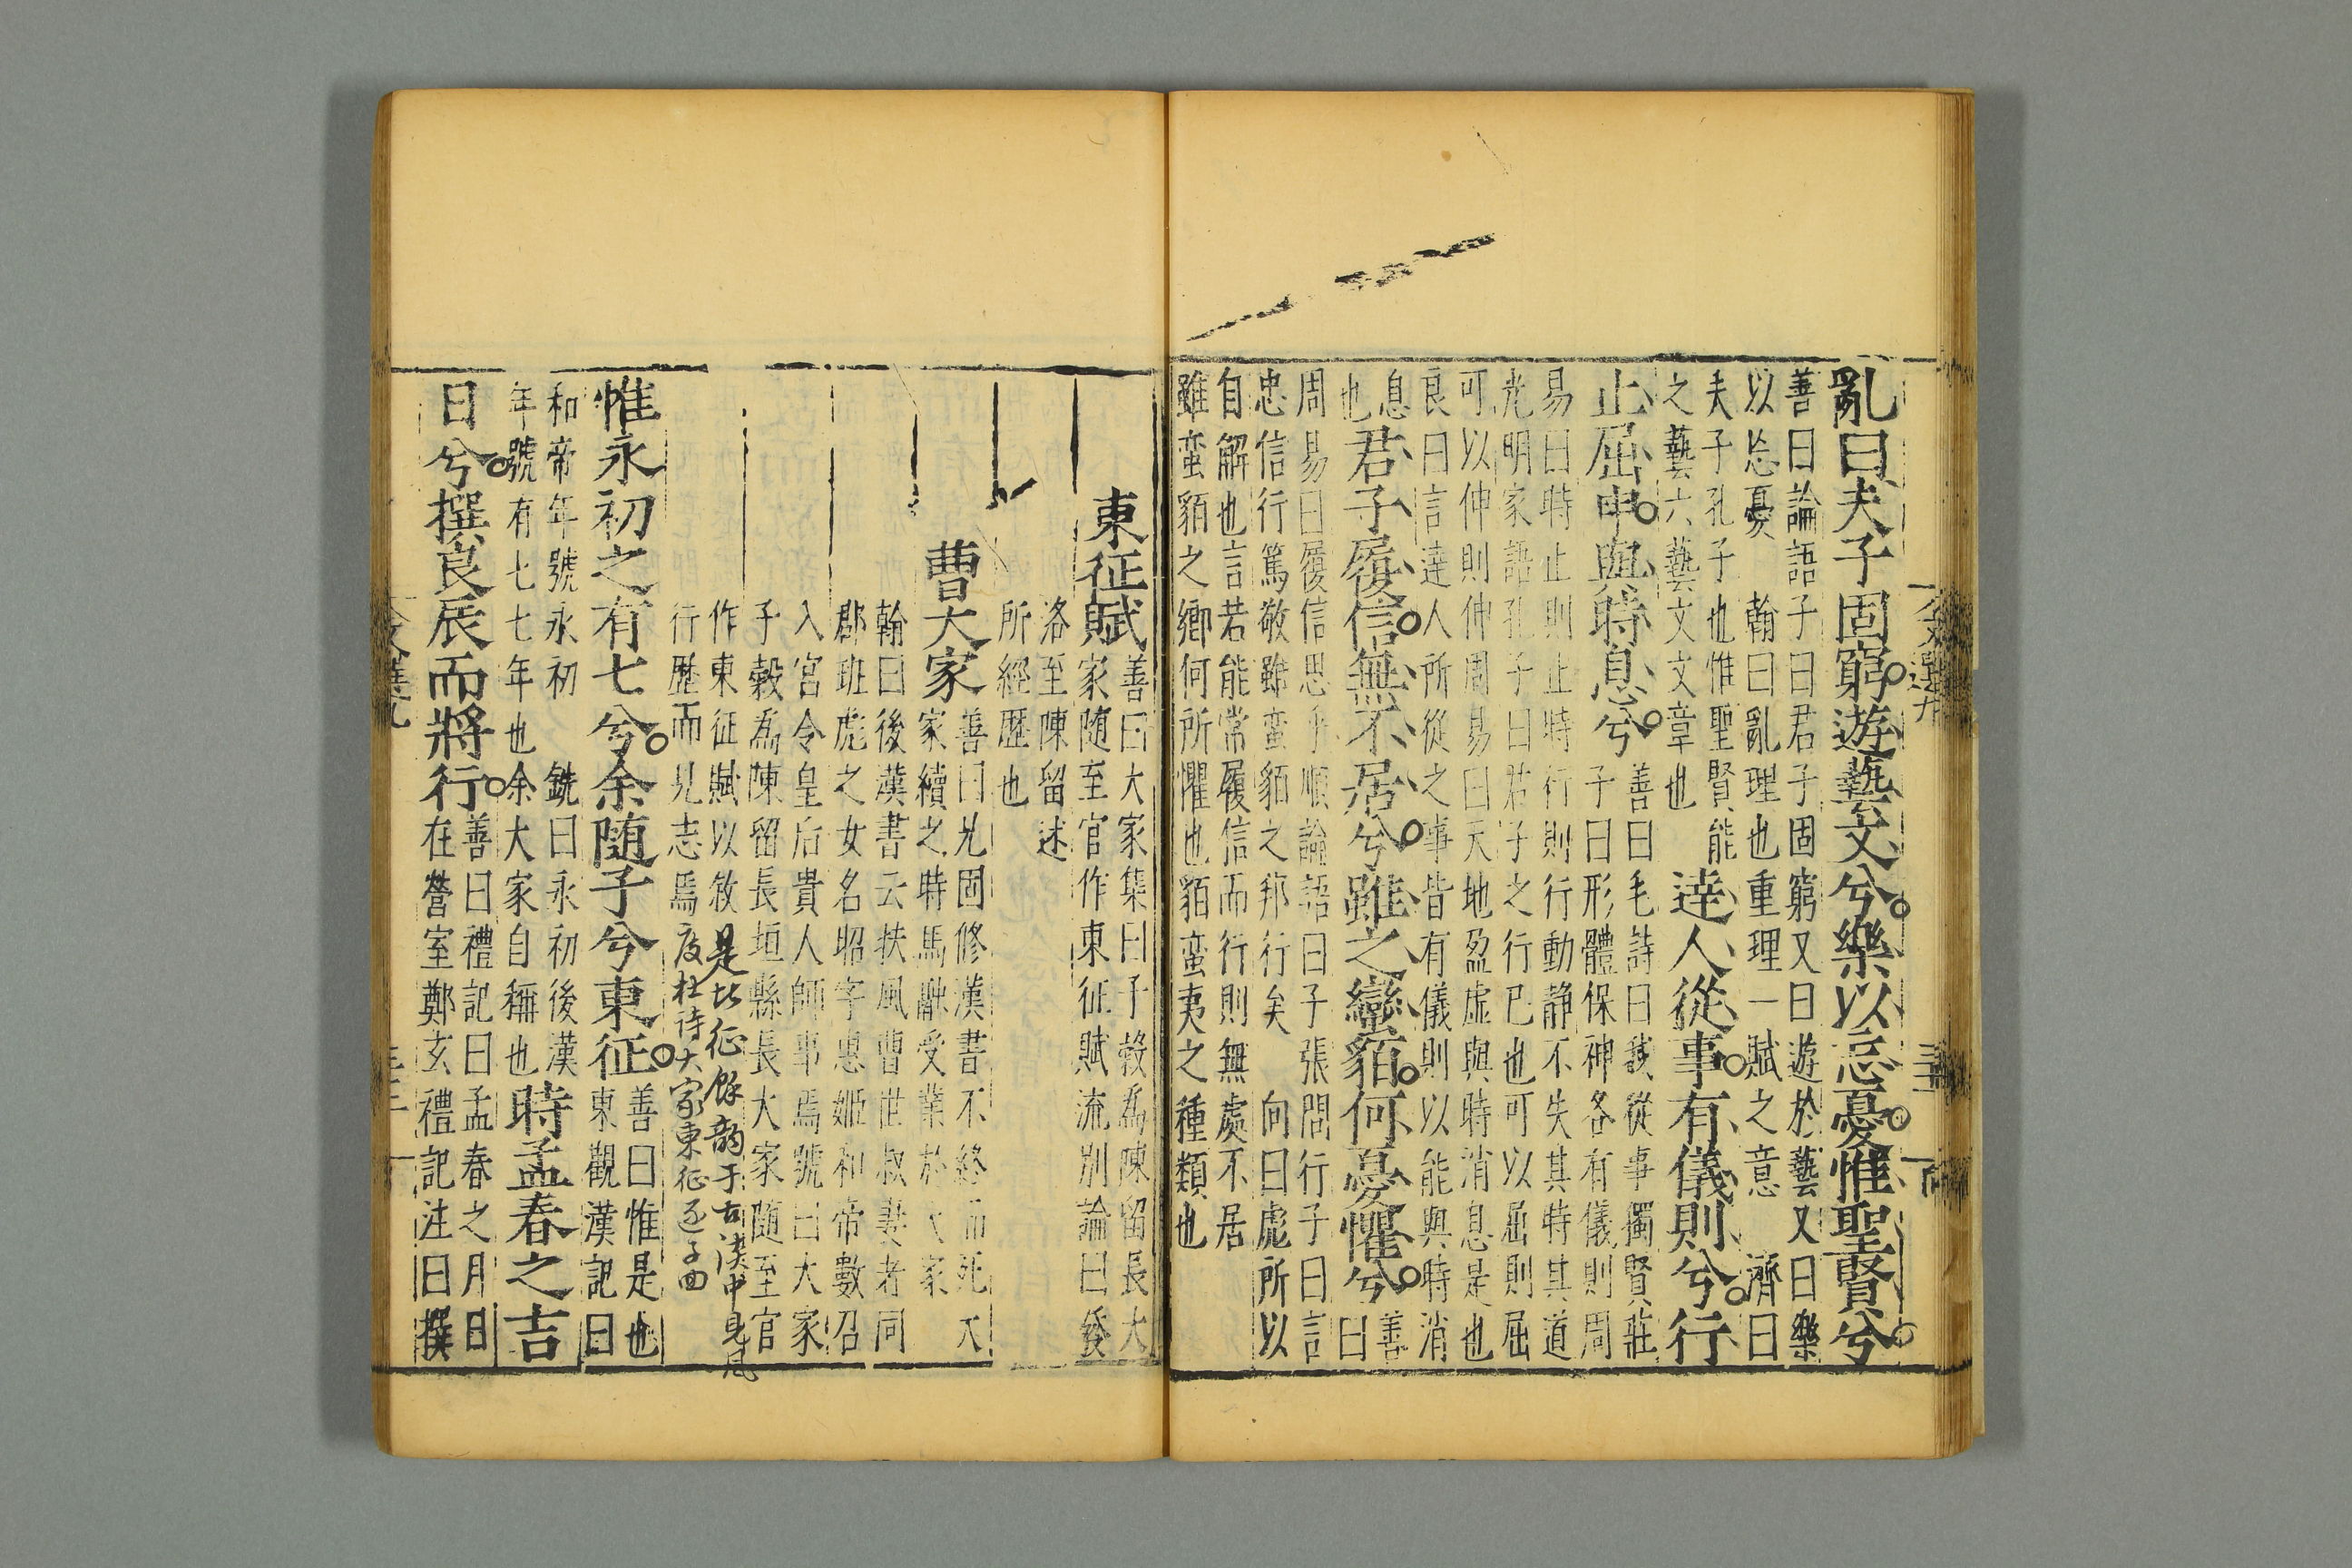 亂曰夫子固窮遊藝文兮樂以忘憂惟聖賢兮
善曰論語子曰君子固窮又曰遊於藝又曰樂
以忘憂 翰曰亂理也重理一賦之意 濟曰
夫子孔子也惟聖賢能
之藝六藝文文章也
達人從事有儀則兮行
止屈申與時息兮
善曰毛詩曰我從事獨賢莊
子曰形體保神各有儀則周
易曰時止則止時行則行動静不失其時其道
光明家語孔子曰君子之行已也可以屈則屈
可以伸則伸周易曰天地盈虛與時消息是也
良曰言達人所從之事皆有儀則以能與時消
息
也
君子履信無不居兮雖之蠻貊何憂懼兮
善
曰
周易曰履信思乎順論語曰子張問行子曰言
忠信行篤敬雖蛮貊之邦行矣 向曰彪所以
自解也言若能常履信而行則無處不居
雖蛮貊之鄉何所懼也貊蛮夷之種類也
文選九
三十一
東征賦
善曰大家集曰子榖為陳留長大
家隨至官作東征賦流別論曰發
洛至陳留述
所經歷也
曹大家
善曰兄固修漢書不終而死大
家續之時馬融受業於大家
翰曰後漢書云扶風曹世叔妻者同
郡班彪之女名昭字惠姬和帝數召
入宮令皇后貴人師事焉號曰大家
子榖為陳留長垣縣長大家隨至官
作東征賦以敘
行歷而見志焉
是北征餘韵于古淡中見風
度杜詩大家東征逐子回
惟永初之有七兮余随子兮東征
善曰惟是也
東觀漢記曰
和帝年號永初 銑曰永初後漢
年號有七七年也余大家自稱也
時孟春之吉
日兮撰良辰而將行
善曰禮記曰孟春之月日
在營室鄭玄禮記注曰撰
文選九